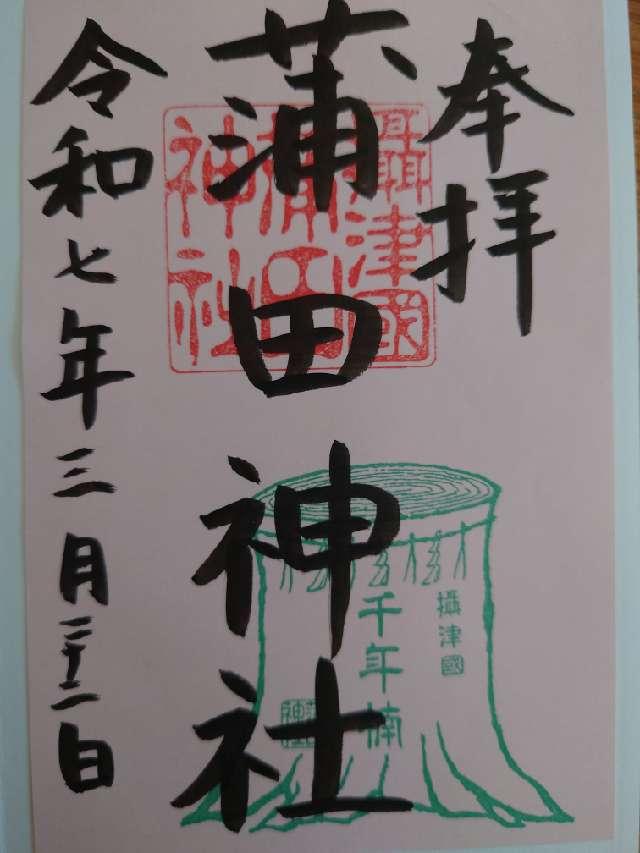 奉拝
攝津國
蒲田
神社
蒲田神社
攝津國
千年楠
令和七年三月二十二日